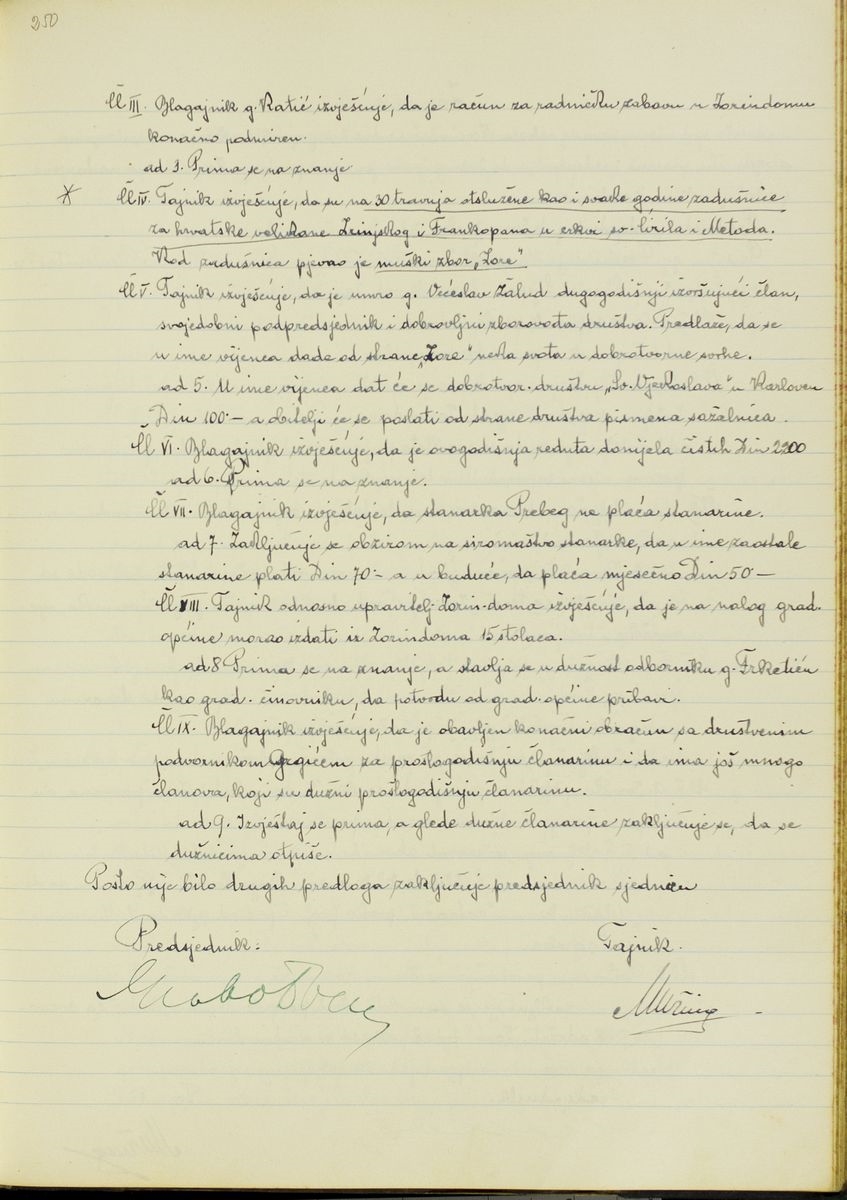 250
Čl III. Blagajnik g. Katić izvješćuje, da je račun za radničku zabavu u Zorindomu
konačno podmiren.
ad 3. Prima se na znanje
Čl IV. Tajnik izvješćuje, da su na 30 travnja otslužene kao i svake godine zadušnice
za hrvatske velikane Zrinjskog i Frankopana u crkvi sv. Ćirila i Metoda.
Kod zadušnica pjevao je muški zbor „Zore“
Čl V. Tajnik izvješćuje, da je umro g. Većeslav Žalud dugogodišnji izvršujući član,
svojedobni podpredsjednik i dobrovljni zborovođa društva. Predlaže, da se
u ime vijenca dade od strane „Zore“ neka svota u dobrotvorne svrhe.
ad 5. U ime vijenca dat će se dobrotvor. društvu „Sv. Vjekoslava“ u Karlovcu
Din 100.– a obitelji će se poslati od strane društva pismena sažalnica.
Čl VI. Blagajnik izvješćuje, da je ovogodišnja reduta donijela čistih Din 2200
ad 6. Prima se na znanje.
Čl VII. Blagajnik izvješćuje, da stanarka Prebeg ne plaća stanarine.
ad 7. Zaključuje se obzirom na siromaštvo stanarke, da u ime zaostale
stanarine plati Din 70.– a u buduće, da plaća mjesečno Din 50.–
Čl VIII. Tajnik odnosno upravitelj Zorin-doma izvješćuje, da je na nalog grad.
općine morao izdati iz Zorindoma 15 stolaca.
ad 8 Prima se na znanje, a stavlja se u dužnost odborniku g. Frketiću
kao grad. činovniku, da potvrdu od grad. općine pribavi.
Čl IX. Blagajnik izvješćuje, da je obavljen konačni obračun sa društvenim
podvornikom Grgićem za prošlogodišnju članarinu i da ima još mnogo
članova, koji su dužni prošlogodišnju članarinu.
ad 9. Izvještaj se prima, a glede dužne članarine zaključuje se, da se
dužnicima otpiše.
Pošto nije bilo drugih predloga zaključuje predsjednik sjednicu
Predsjednik: Tajnik.